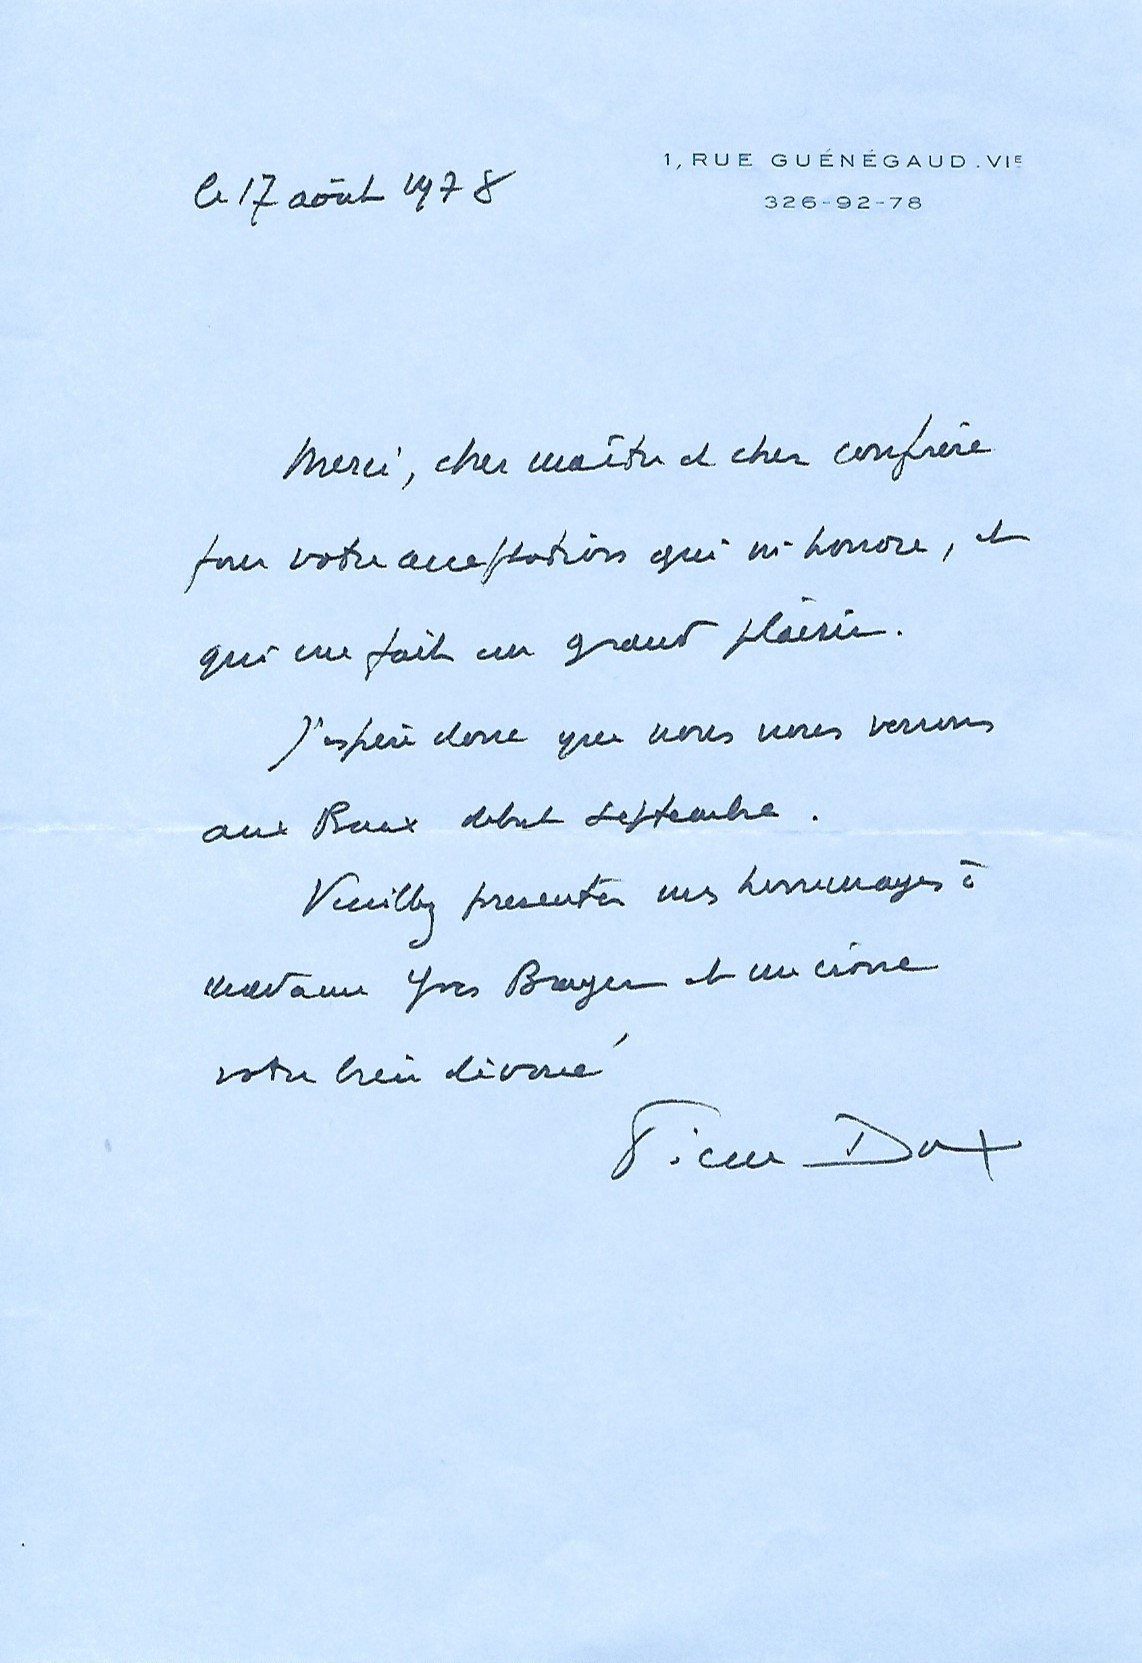 1, RUE GUÉNÉGAUD. VIE
326-92-78
le 17 août 1978
Merci, cher maître et cher confrère
pour votre acceptation qui m'honore, et
qui me fait un grand plaisir.
J'espère donc que nous nous verrons
aux Baux début septembre.
Veuillez présenter mes hommages à
madame Yves Brayer et me croire
votre bien dévoué
Pierre Dux